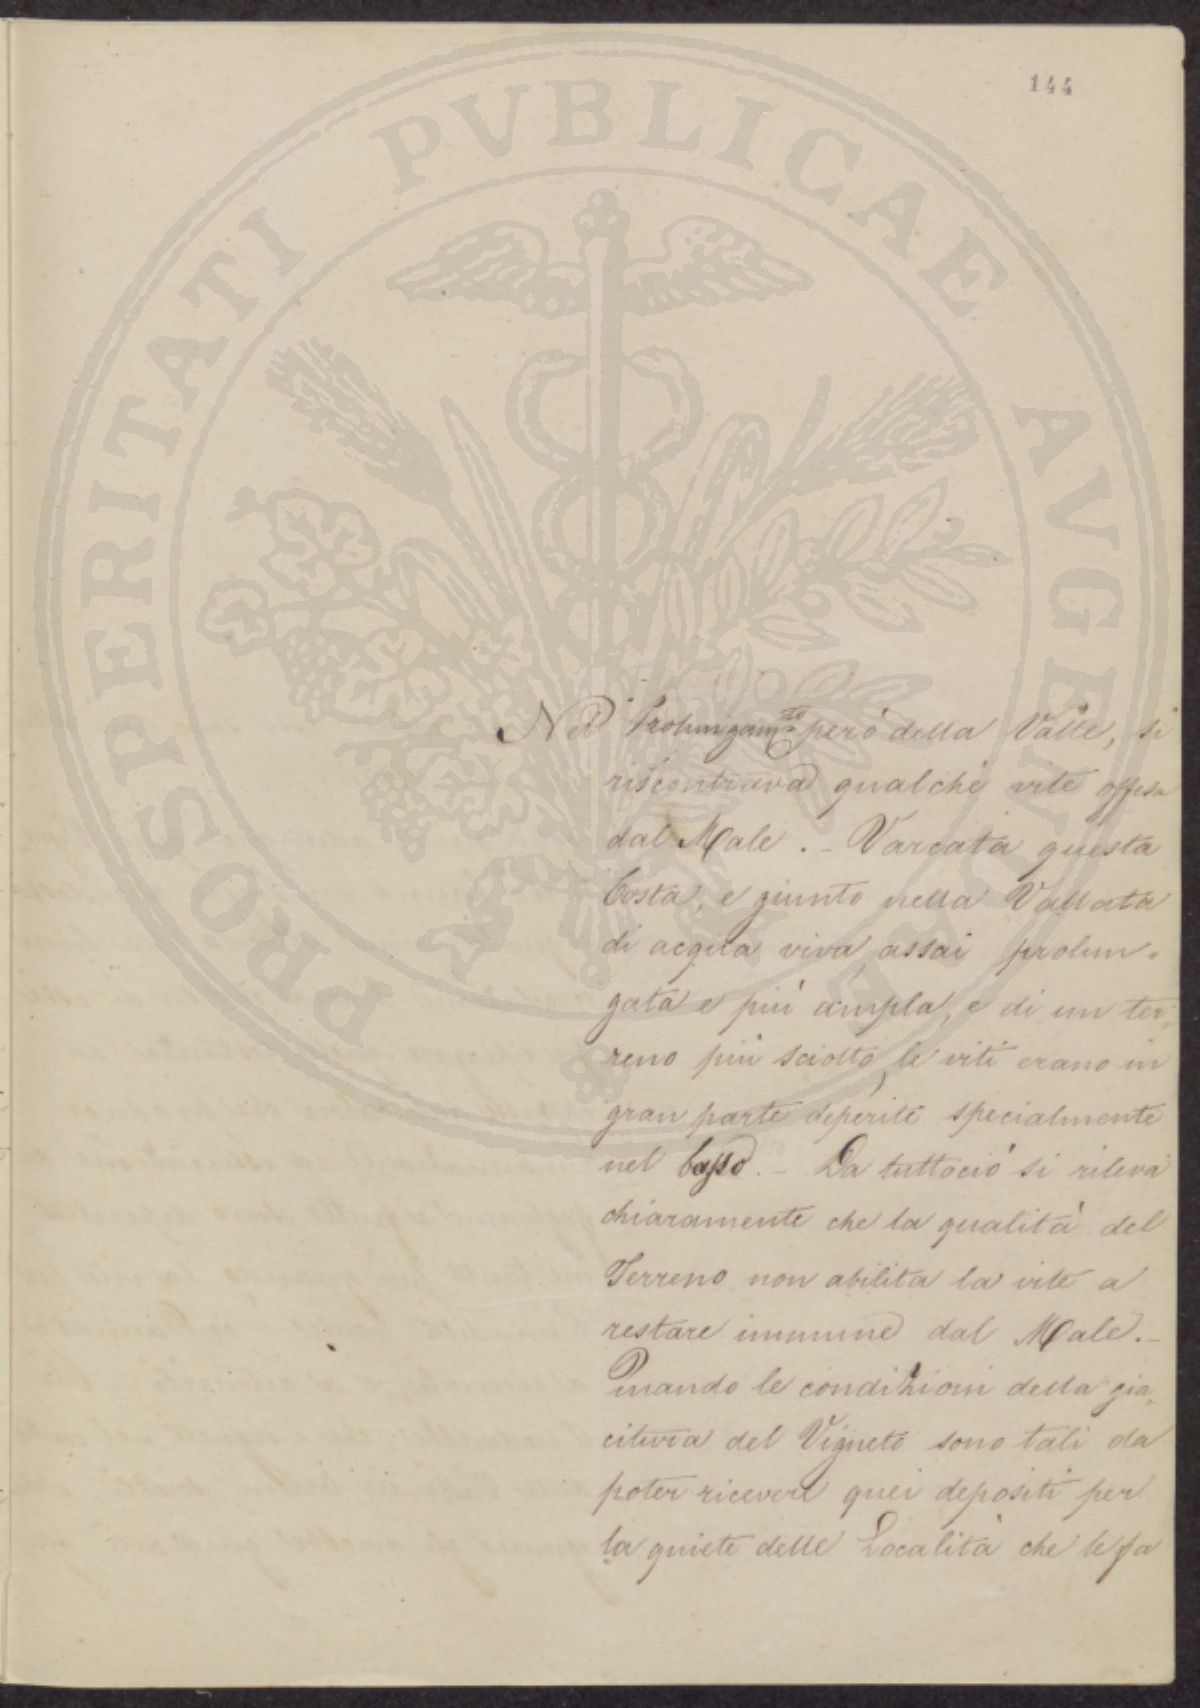 144
PROSPERITATI PUBLICAE AUGENDAE
Nel Prolungam.to però della Valle, si
riscontrava qualche vite offesa
dal Male. - Varcata questa
Costa, e giunto nella Vallata
di acqua viva assai prolun-
gata e più ampla, e di un ter-
reno più sciolto, le viti erano in
gran parte deperite specialmente
nel basso. - Da tuttociò si rileva
chiaramente che la qualità del
Terreno non abilita la vite a
restare immune dal Male. -
Quando le condizioni della gia-
citura del Vigneto sono tali da
poter ricevere quei depositi per
la quiete delle Località che le fa